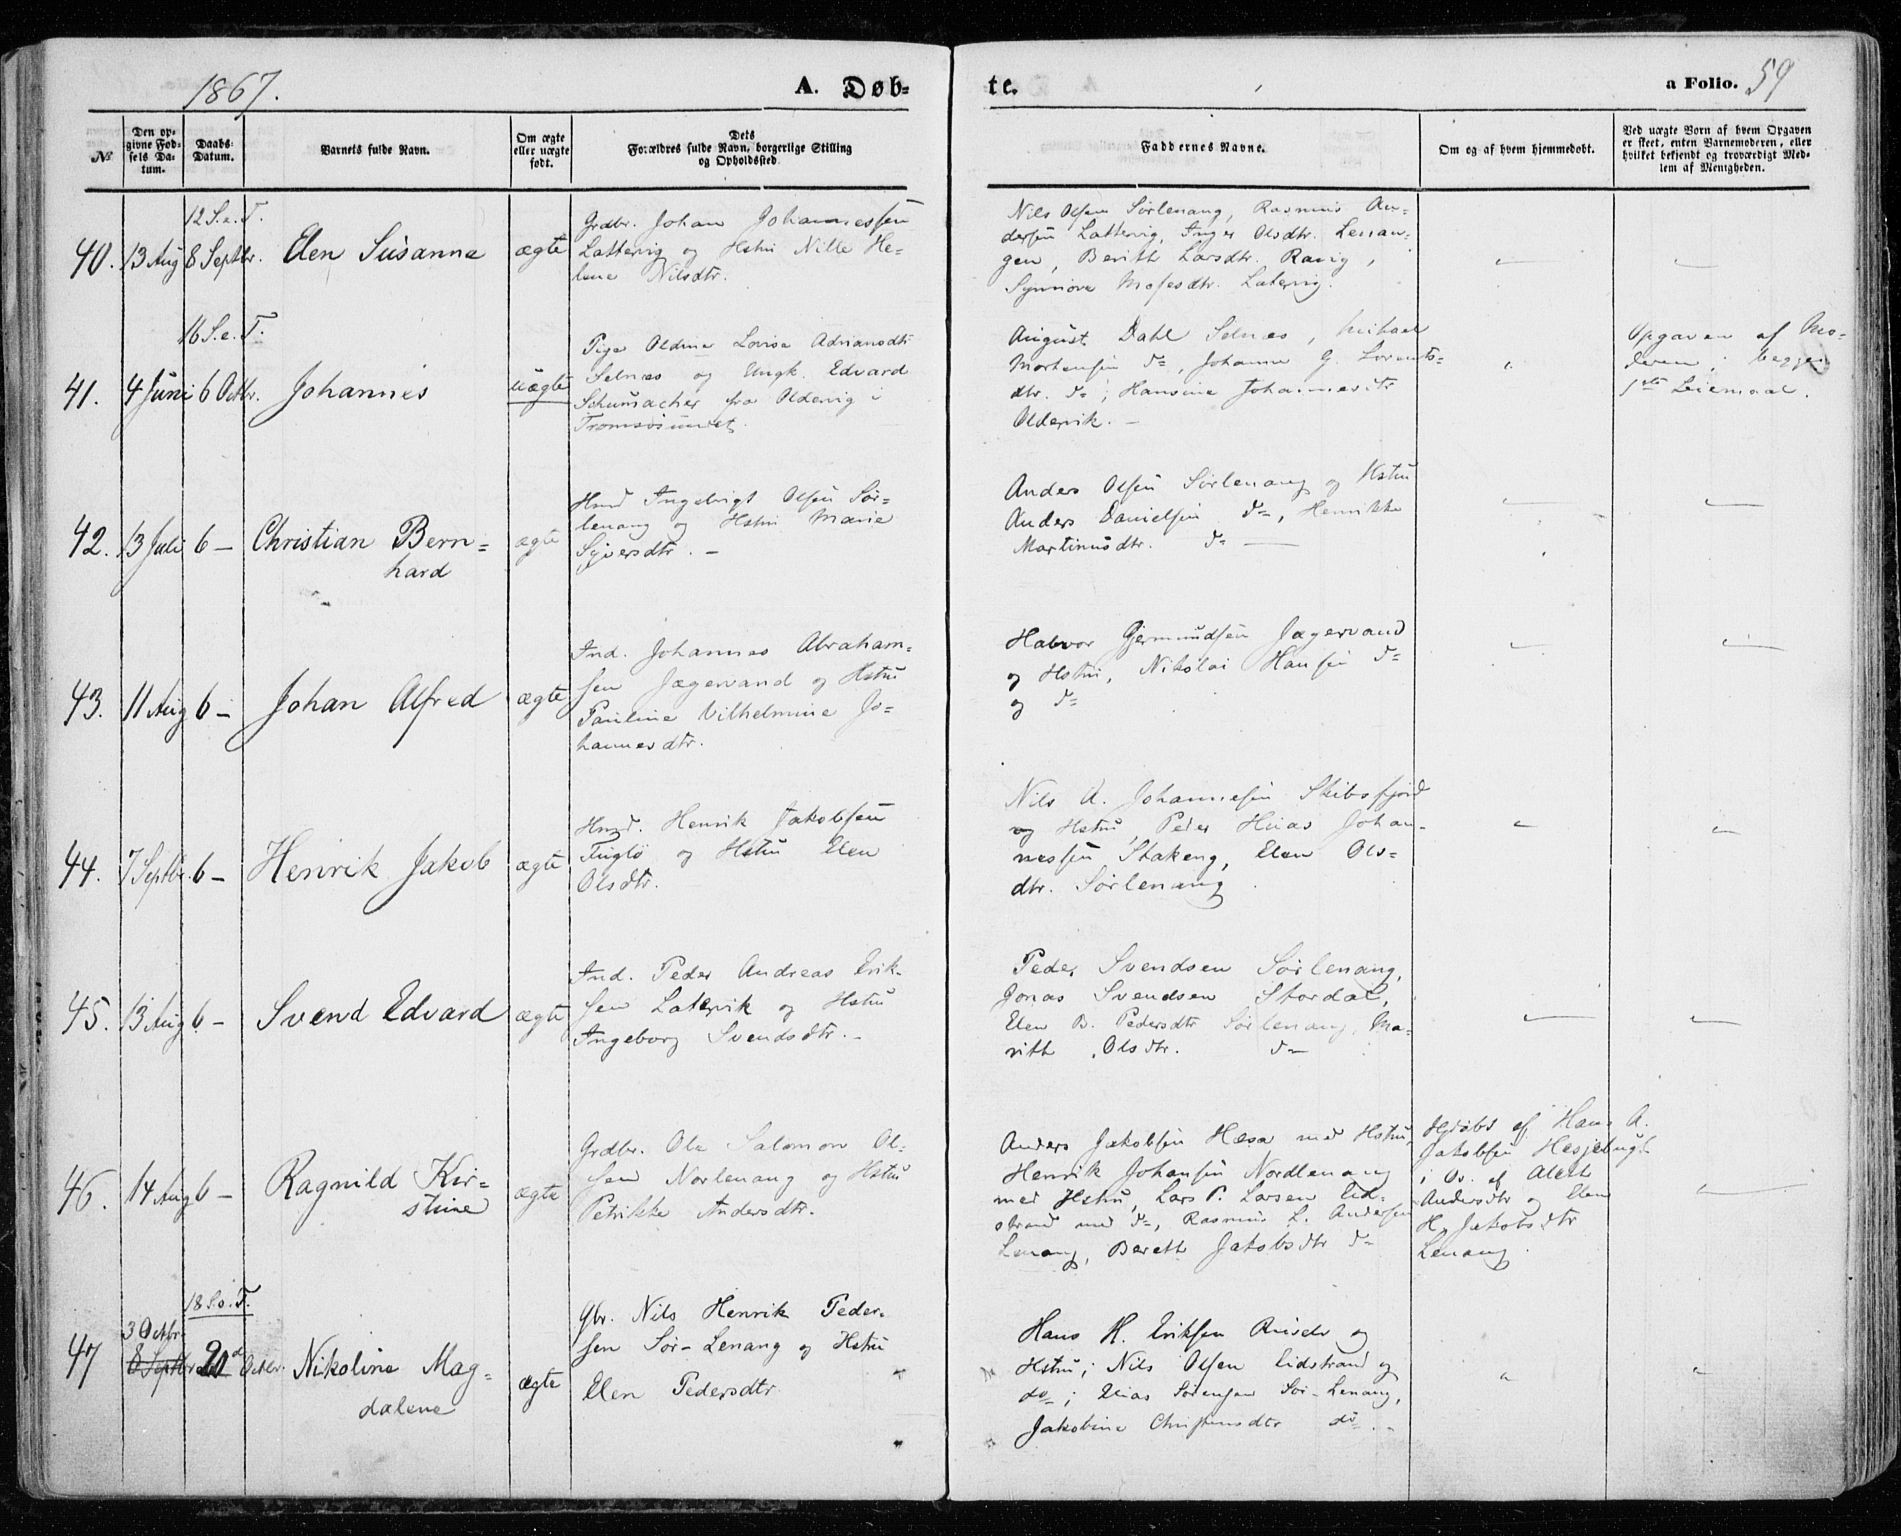 1867.
A. Døb-
te.
a Folio. 59
№
Den op-
givne Fød-
sels Da-
tum.
Daabs-
Datum.
Barnets fulde Navn.
Om ægte
eller uægte
født.
Dets
Forældres fulde Navn, borgerlige Stilling
og Opholdssted.
Faddernes Navne.
Om og af hvem hjemmedøbt.
Ved uægte Born af hvem Opgaven
er skeet, enten Barnemoderen, eller
hvilket bekjendt og troværdigt Med-
lem af Menigheden.
12 S. e. T.
40. 13 Aug 8 Septbr. Elen Susanna ægte
Grdbr. Johan Johannessen
Lattervig og Hstru Nille He-
lene Nilsdtr.
Nils Olsen Sørlenang, Rasmus An-
dersen Lattervig, Inger Olsdtr. Lenan-
gen, Berith Larsdtr. Ravig,
Synnøve Mosesdtr. Latervig.
16 S. e. T.
41. 4 Juni 6 Octbr. Johannes uægte
Pige Oldine Lovise Adriansdtr
Selnæs og Ungk. Edvard
Schumacher fra Oldervig i
Tromsøsundet.
August Dahl Selnæs, Mikael
Mortensen do, Johanne G. Lorents-
dtr. do; Hansine Johannesdtr
Oldervik. –
Opgaven af Mo-
deren; begges
1ste Leiermaal.
42. 13 Juli 6 – Christian Bern-
hard
ægte
Hmd Ingebrigt Olsen Sør-
lenang og Hstru Marie
Syversdtr. –
Anders Olsen Sørlenang og Hstru
Anders Danielsen do, Henrikke
Martinusdtr. do —
43. 11 Aug 6 – Johan Alfred ægte
Ind. Johannes Abraham-
sen Jægervand og Hstru
Pauline Vilhelmine Jo-
hannesdtr.
Halvor Gjermundsen Jægervand
og Hstru, Nikolai Hansen do
og do
44. 7 Septbr. 6 – Henrik Jakob ægte
Hmd. Henrik Jakobsen
Fuglø og Hstru Elen
Olsdtr.
Nils A. Johannesen Skibsfjord
og Hstru, Peder Johan-
nessen Stakeng, Elen Ols-
dtr. Sørlenang.
45. 13 Aug 6 – Svend Edvard ægte
Ind. Peder Andreas Erik-
sen Latervik og Hstru
Ingeborg Svendsdtr. –
Peder Svendsen Sørlenang,
Jonas Svendsen Stordal,
Elen B. Pedersdtr Sørlenang, Ma-
rith Olsdtr. do
46. 14 Aug 6 – Ragnild Kir-
stine
ægte
Grdbr. Ole Salomon Ol-
sen Norlenang og Hstru
Petrikke Andersdtr.
Anders Jakobsen Hæsa med Hstru,
Henrik Johansen Nordlenang
med Hstru, Lars P. Larsen Eid-
strand med do, Rasmus L. Andersen
Lenang, Bereth Jakobsdtr do
Hjdøbt af Hans A.
Jakobsen Hesjebugt
i Ov. af Aleth
Andersdtr og Elen
H. Jakobsdtr
Lenang.
18 S. e. T.
3 Octbr.
47 8 Septbr. 20d Octbr. Nikoline Mag-
dalene
ægte
Gbr. Nils Henrik Peder-
sen Sør-Lenang og Hstru
Elen Pedersdtr
Hans H. Eriksen og
Hstru; Nils Olsen Eidstrand og
do; Elias Sørensen Sør-Lenang,
Jakobine Christensdtr do. –